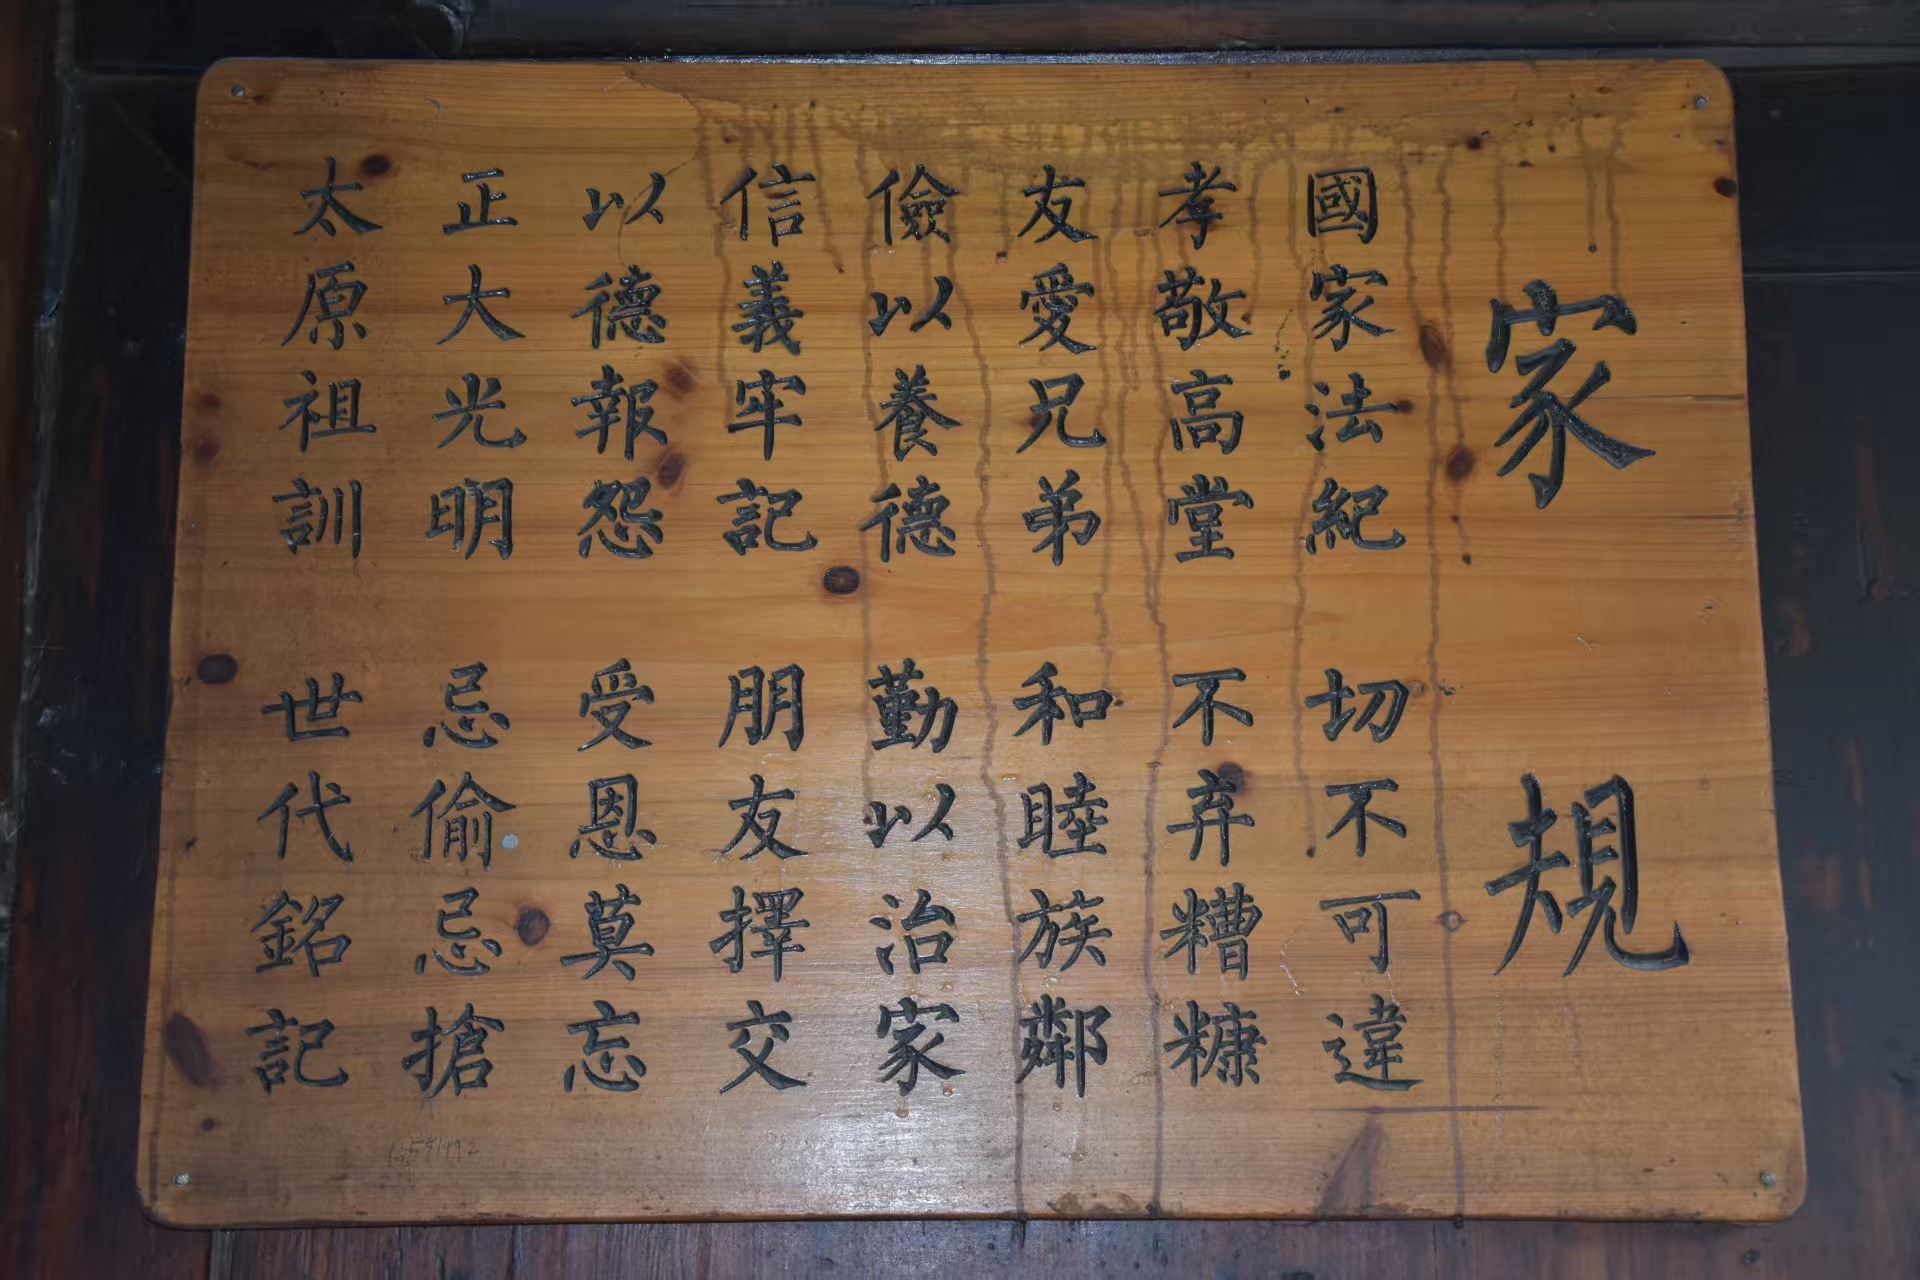 家規
國家法紀 切不可違
孝敬高堂 不弃糟糠
友愛兄弟 和睦族鄰
儉以養德 勤以治家
信義牢記 朋友擇交
以德報怨 受恩莫忘
正大光明 忌偷忌搶
太原祖訓 世代銘記